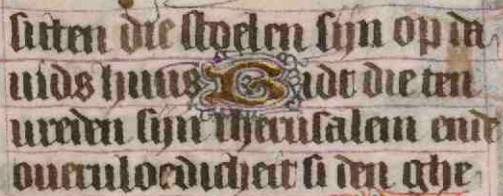 sitten die stoelen sijn op da
uids huus Bidt die ten
vreden sijn iherusalem ende
oueruloedicheit si den ghe